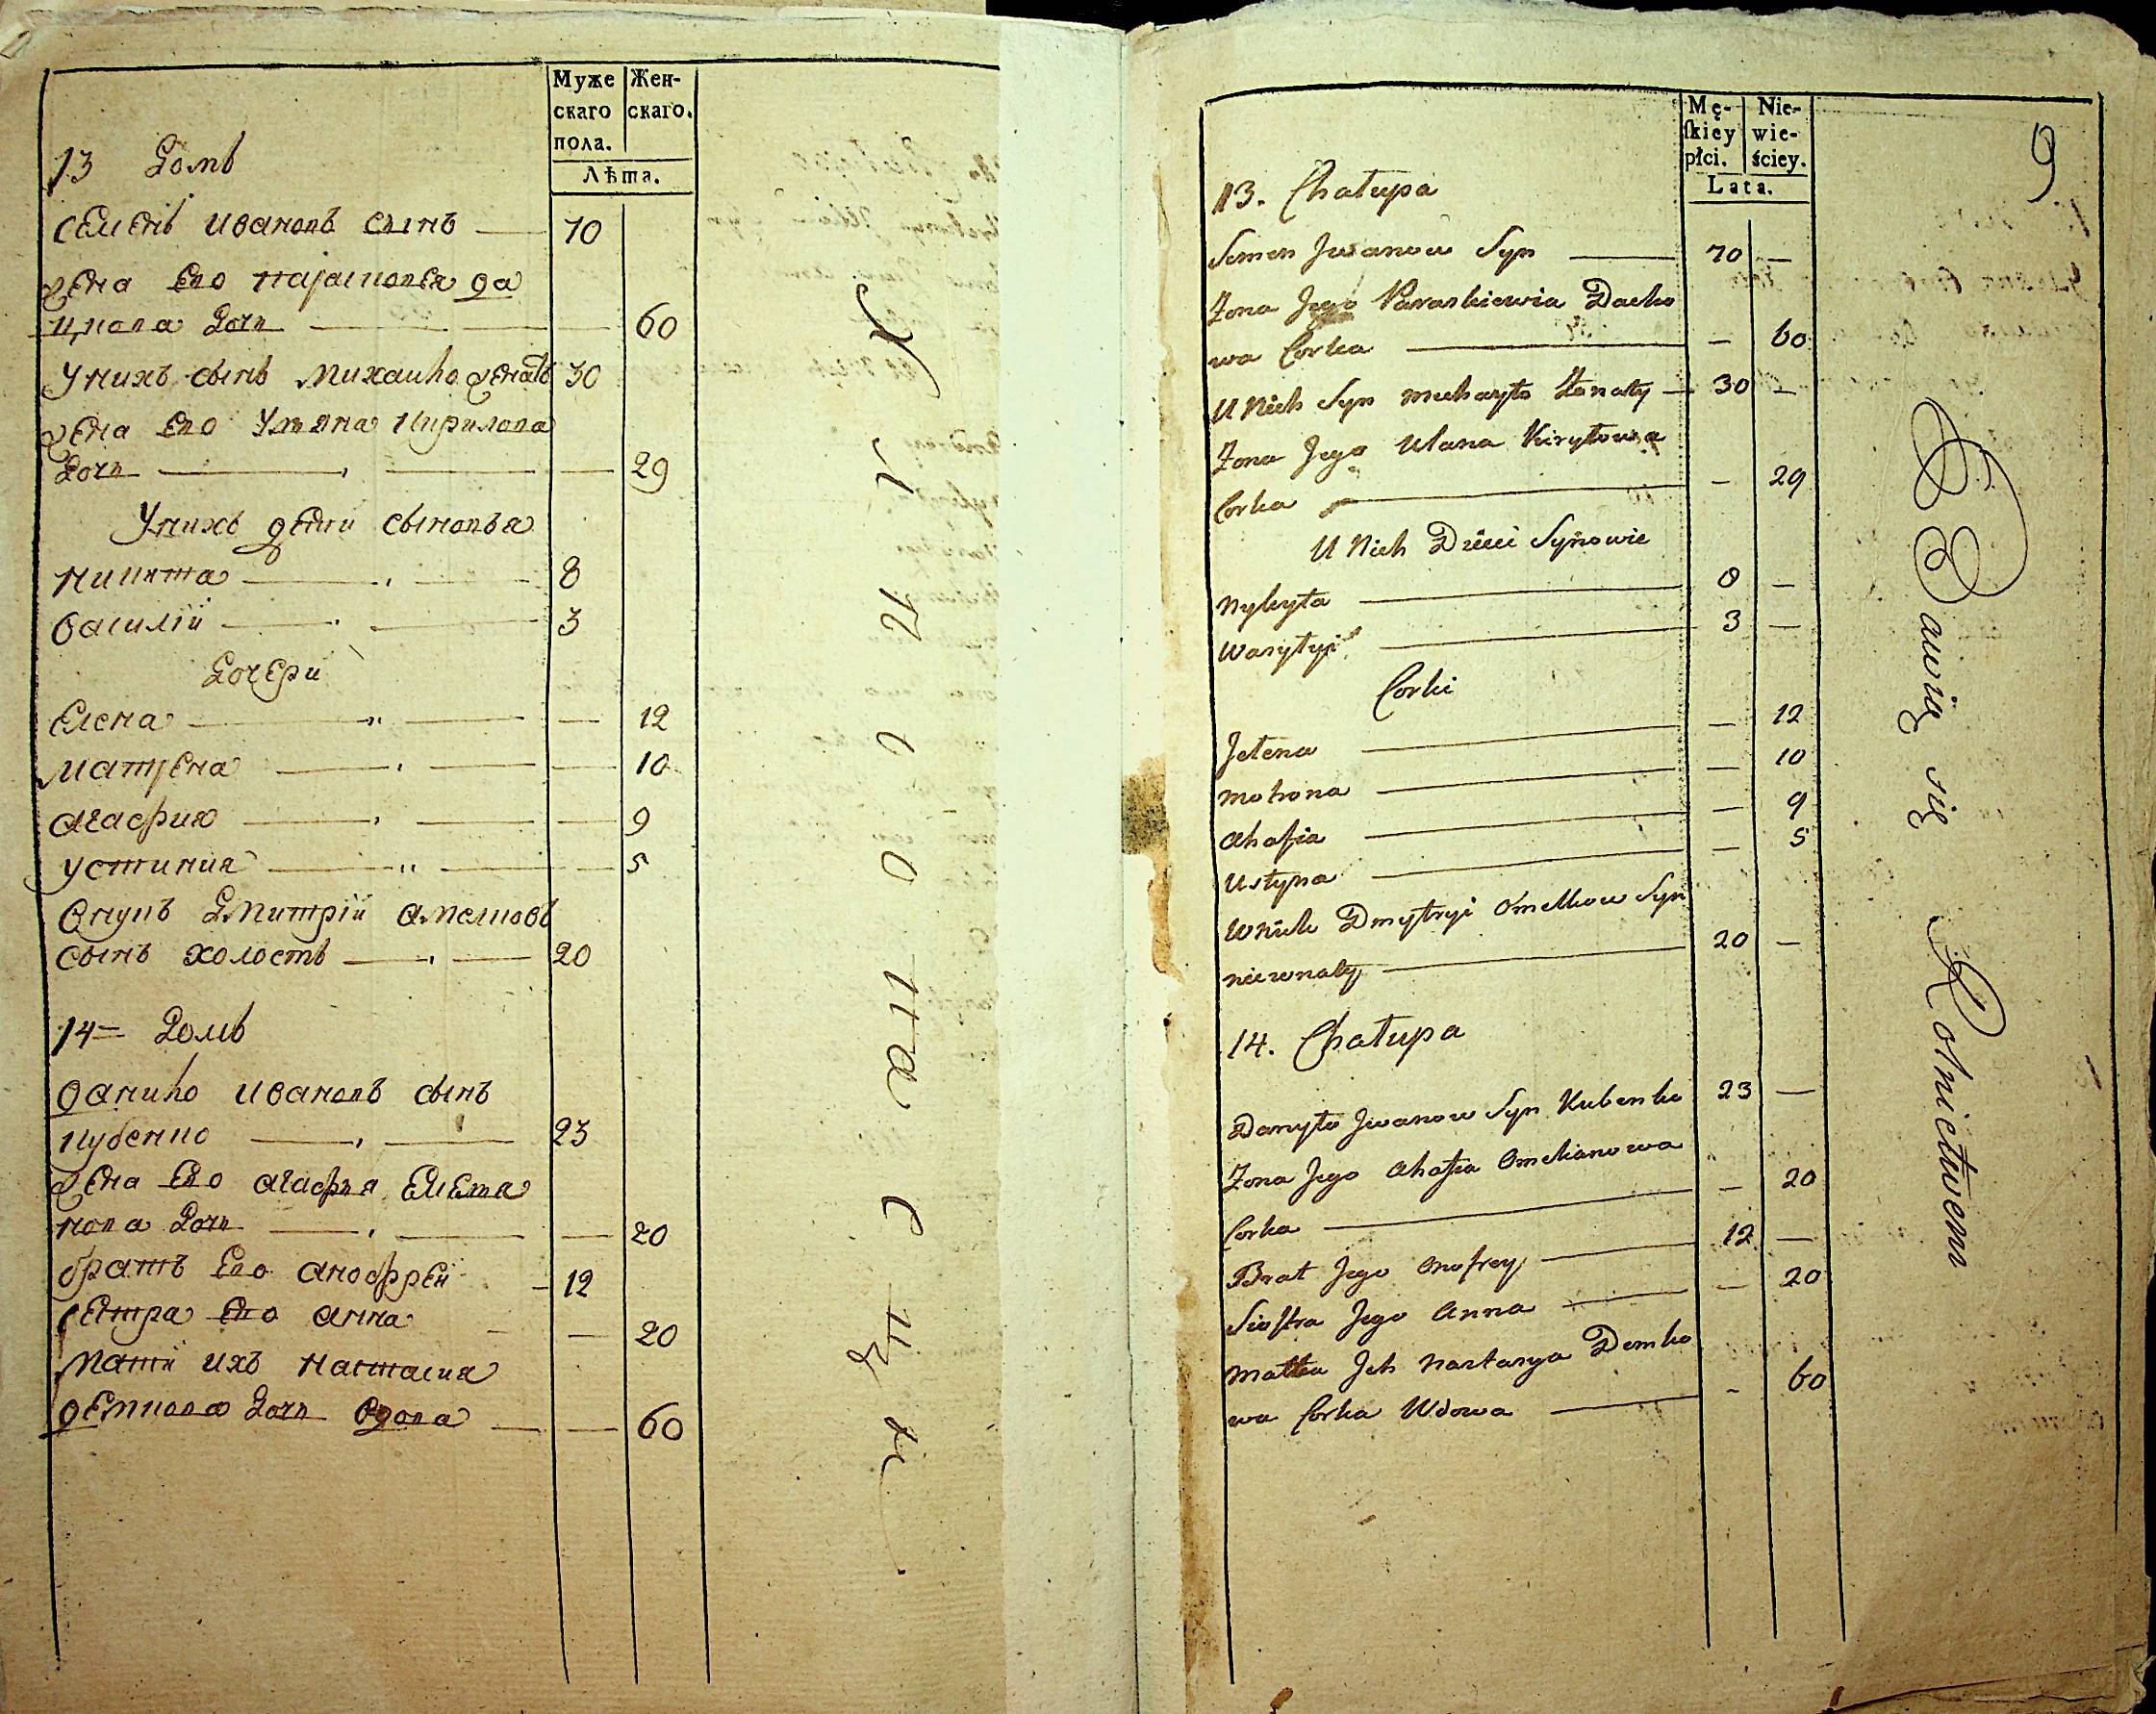 Муже
скаго
пола.
Жен-
скаго.
Лѣта.
13 Домъ
Семенъ Ивановъ сынъ — 70
жена его Парасковея Да
цкова дочь — 60
У нихъ сынъ Михайло женатъ 30
жена его Ульяна Кирилова
дочь — 29
У нихъ дети сыновья
Никита — 8
Василій — 3
Дочери
Елена — 12
Матрена — 10
Агафия — 9
Устиния — 5
Внукъ Дмитрій Амелковъ
сынъ холостъ — 20
14 = Домъ
Данило Ивановъ сынъ
Кубенко — 23
жена его Агафья Емелья
нова дочь — 20
братъ его Анофрей — 12
сестра его Анна — 20
Мати ихъ Настасия
Демкова дочь вдова — 60
Mę-
ſkiey
płci.
Nie-
wie-
ściey.
Lata.
9
13. Chałupa
Semen Jwanow Syn — 70 —
Żona Jego Paraskiewia Dacko
wa Corka — — 60
U Nich Syn Michayło Żonaty — 30 —
Żona Jego Ulana Kiryłowa
Corka — — 29
U Nich Dzieci Synowie
Nykyta — 8 —
Wasyłyi — 3 —
Corki
Jełena — — 12
Motrona — — 10
Ahafia — — 9
Ustyna — — 5
Wnuk Dmytryi Omelkow Syn
nieżonaty — 20 —
14. Chałupa
Danyło Jwanow Syn Kubenko 23 —
Żona Jego Ahafia Omelianowa
Corka — — 20
Brat Jego Onofrey — 12 —
Siostra Jego Anna — — 20
Matka Jch Nastasya Demko
wa Corka Wdowa — — 60
Bawią się Rolnictwem